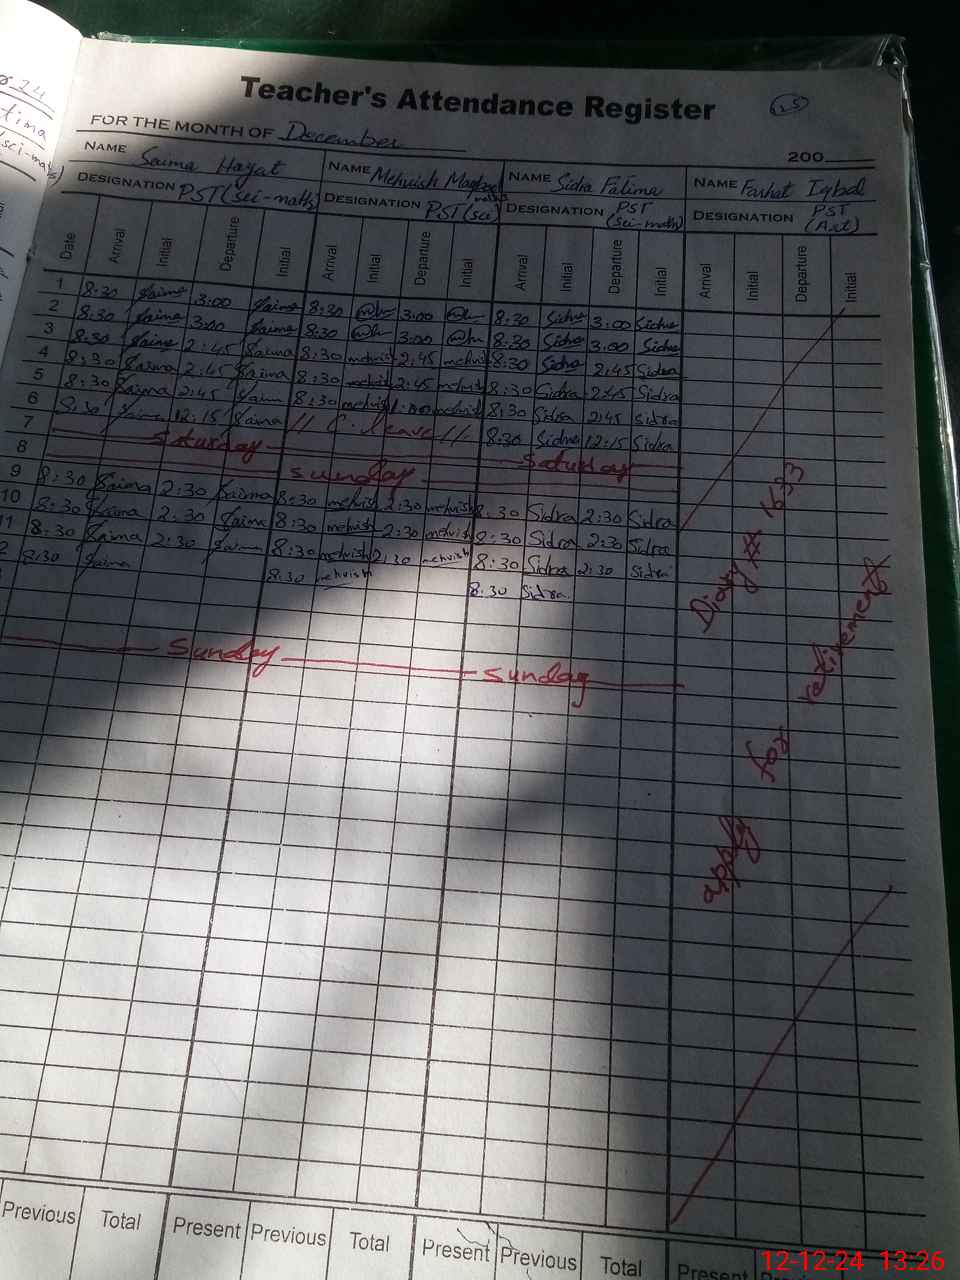 Teacher's Attendance Register
25
FOR THE MONTH OF December
200
NAME Saima Hayat NAME Mehvish NAME Sidra Fatima NAME Farhat Iqbal
DESIGNATION PST (sci-math) DESIGNATION PST (sci DESIGNATION PST (sci-math) DESIGNATION PST (Art)
Date Arrival Initial Departure Initial Arrival Initial Departure Initial Arrival Initial Departure Initial Arrival Initial Departure Initial
1 8:30 Saima 3:00 Saima 8:30 3:00 8:30 Sidra 3:00 Sidra
2 8:30 Saima 3:00 Saima 8:30 3:00 8:30 Sidra 3:00 Sidra
3 8:30 Saima 2:45 Saima 8:30 mehvish 2:45 mehvish 8:30 Sidra 2:45 Sidra
4 8:30 Saima 2:45 Saima 8:30 mehvish 2:45 mehvish 8:30 Sidra 2:45 Sidra
5 8:30 Saima 2:45 Saima 8:30 mehvish mehvish 8:30 Sidra 2:45 Sidra
6 8:30 Saima 12:15 Saima // C. leave // 8:30 Sidra 12:15 Sidra
7 Saturday Saturday
8 Sunday
9 8:30 Saima 2:30 Saima 8:30 mehvish 2:30 mehvish 8:30 Sidra 2:30 Sidra
10 8:30 Saima 2:30 Saima 8:30 mehvish 2:30 mehvish 8:30 Sidra 2:30 Sidra
11 8:30 Saima 2:30 Saima 8:30 mehvish 2:30 mehvish 8:30 Sidra 2:30 Sidra
2 8:30 Saima 8:30 mehvish 8:30 Sidra
Sunday Sunday
Diary # 1633
apply for retirement
Previous Total Present Previous Total Present Previous Total Present
12-12-24 13:26